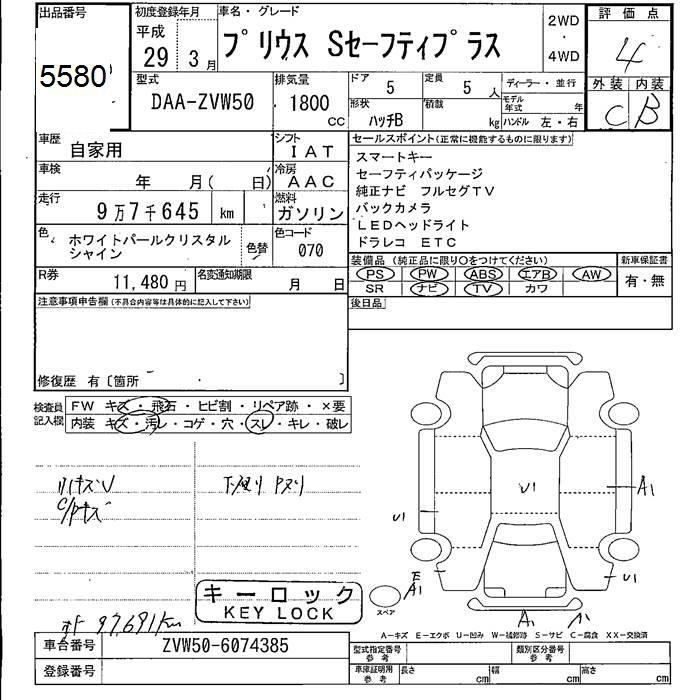 出品番号
5580
初度登録年月
平成
29 3月
車名・グレード
プリウス Sセーフティプラス
2WD
・
4WD
評価点
4
外装 内装
C B
型式
DAA-ZVW50
排気量
1800
CC
ドア
5
定員
5 人
ディーラー・並行
形状
ハッチB
積載
kg
モデル年式 年
ハンドル 左・右
車歴
自家用
シフト
IAT
セールスポイント(正常に機能するものに限ります)
スマートキー
セーフティパッケージ
純正ナビ フルセグTV
バックカメラ
LEDヘッドライト
ドラレコ ETC
車検
年 月( 日)
冷房
AAC
走行
9万7千645 km
燃料
ガソリン
色
ホワイトパールクリスタル
シャイン
色替
色コード
070
装備品 (純正品に限り○をつけてください)
PS PW ABS エアB AW
SR ナビ TV カワ
新車保証書
有・無
R券
11,480円
名変通知期限
月 日
後日品
注意事項申告欄(不具合内容等は具体的に記入して下さい)
修復歴 有〔箇所 〕
検査員
記入欄
FW キズ・飛石・ヒビ割・リペア跡・×要
内装 キズ・汚レ・コゲ・穴・スレ・キレ・破レ
キーロック
KEY LOCK
97,691km
U1
U1
A1
E
A1
U1
A1
スペア
A-キズ E-エクボ U-凹み W-補修跡 S-サビ C-腐食 XX-交換済
車台番号
ZVW50-6074385
型式指定番号
参考
類別区分番号
参考
登録番号
車庫証明用
参考
長さ cm
幅 cm
高さ cm